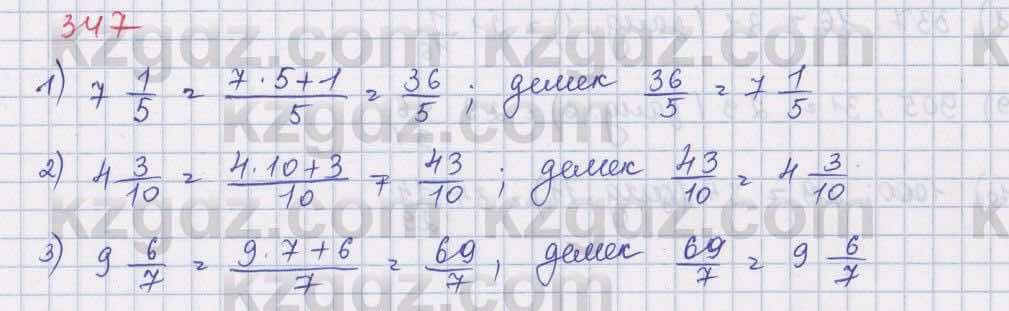 347
1) 7 1/5 = (7 · 5 + 1)/5 = 36/5 ; демек 36/5 = 7 1/5
2) 4 3/10 = (4 · 10 + 3)/10 = 43/10 ; демек 43/10 = 4 3/10
3) 9 6/7 = (9 · 7 + 6)/7 = 69/7 ; демек 69/7 = 9 6/7
kzgdz.com kzgdz.com
kzgdz.com kzgdz.com
kzgdz.com kzgdz.com
kzgdz.com